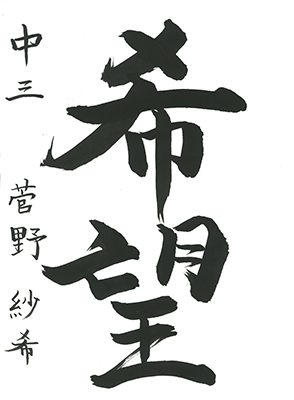 希望
中三 菅野 紗希